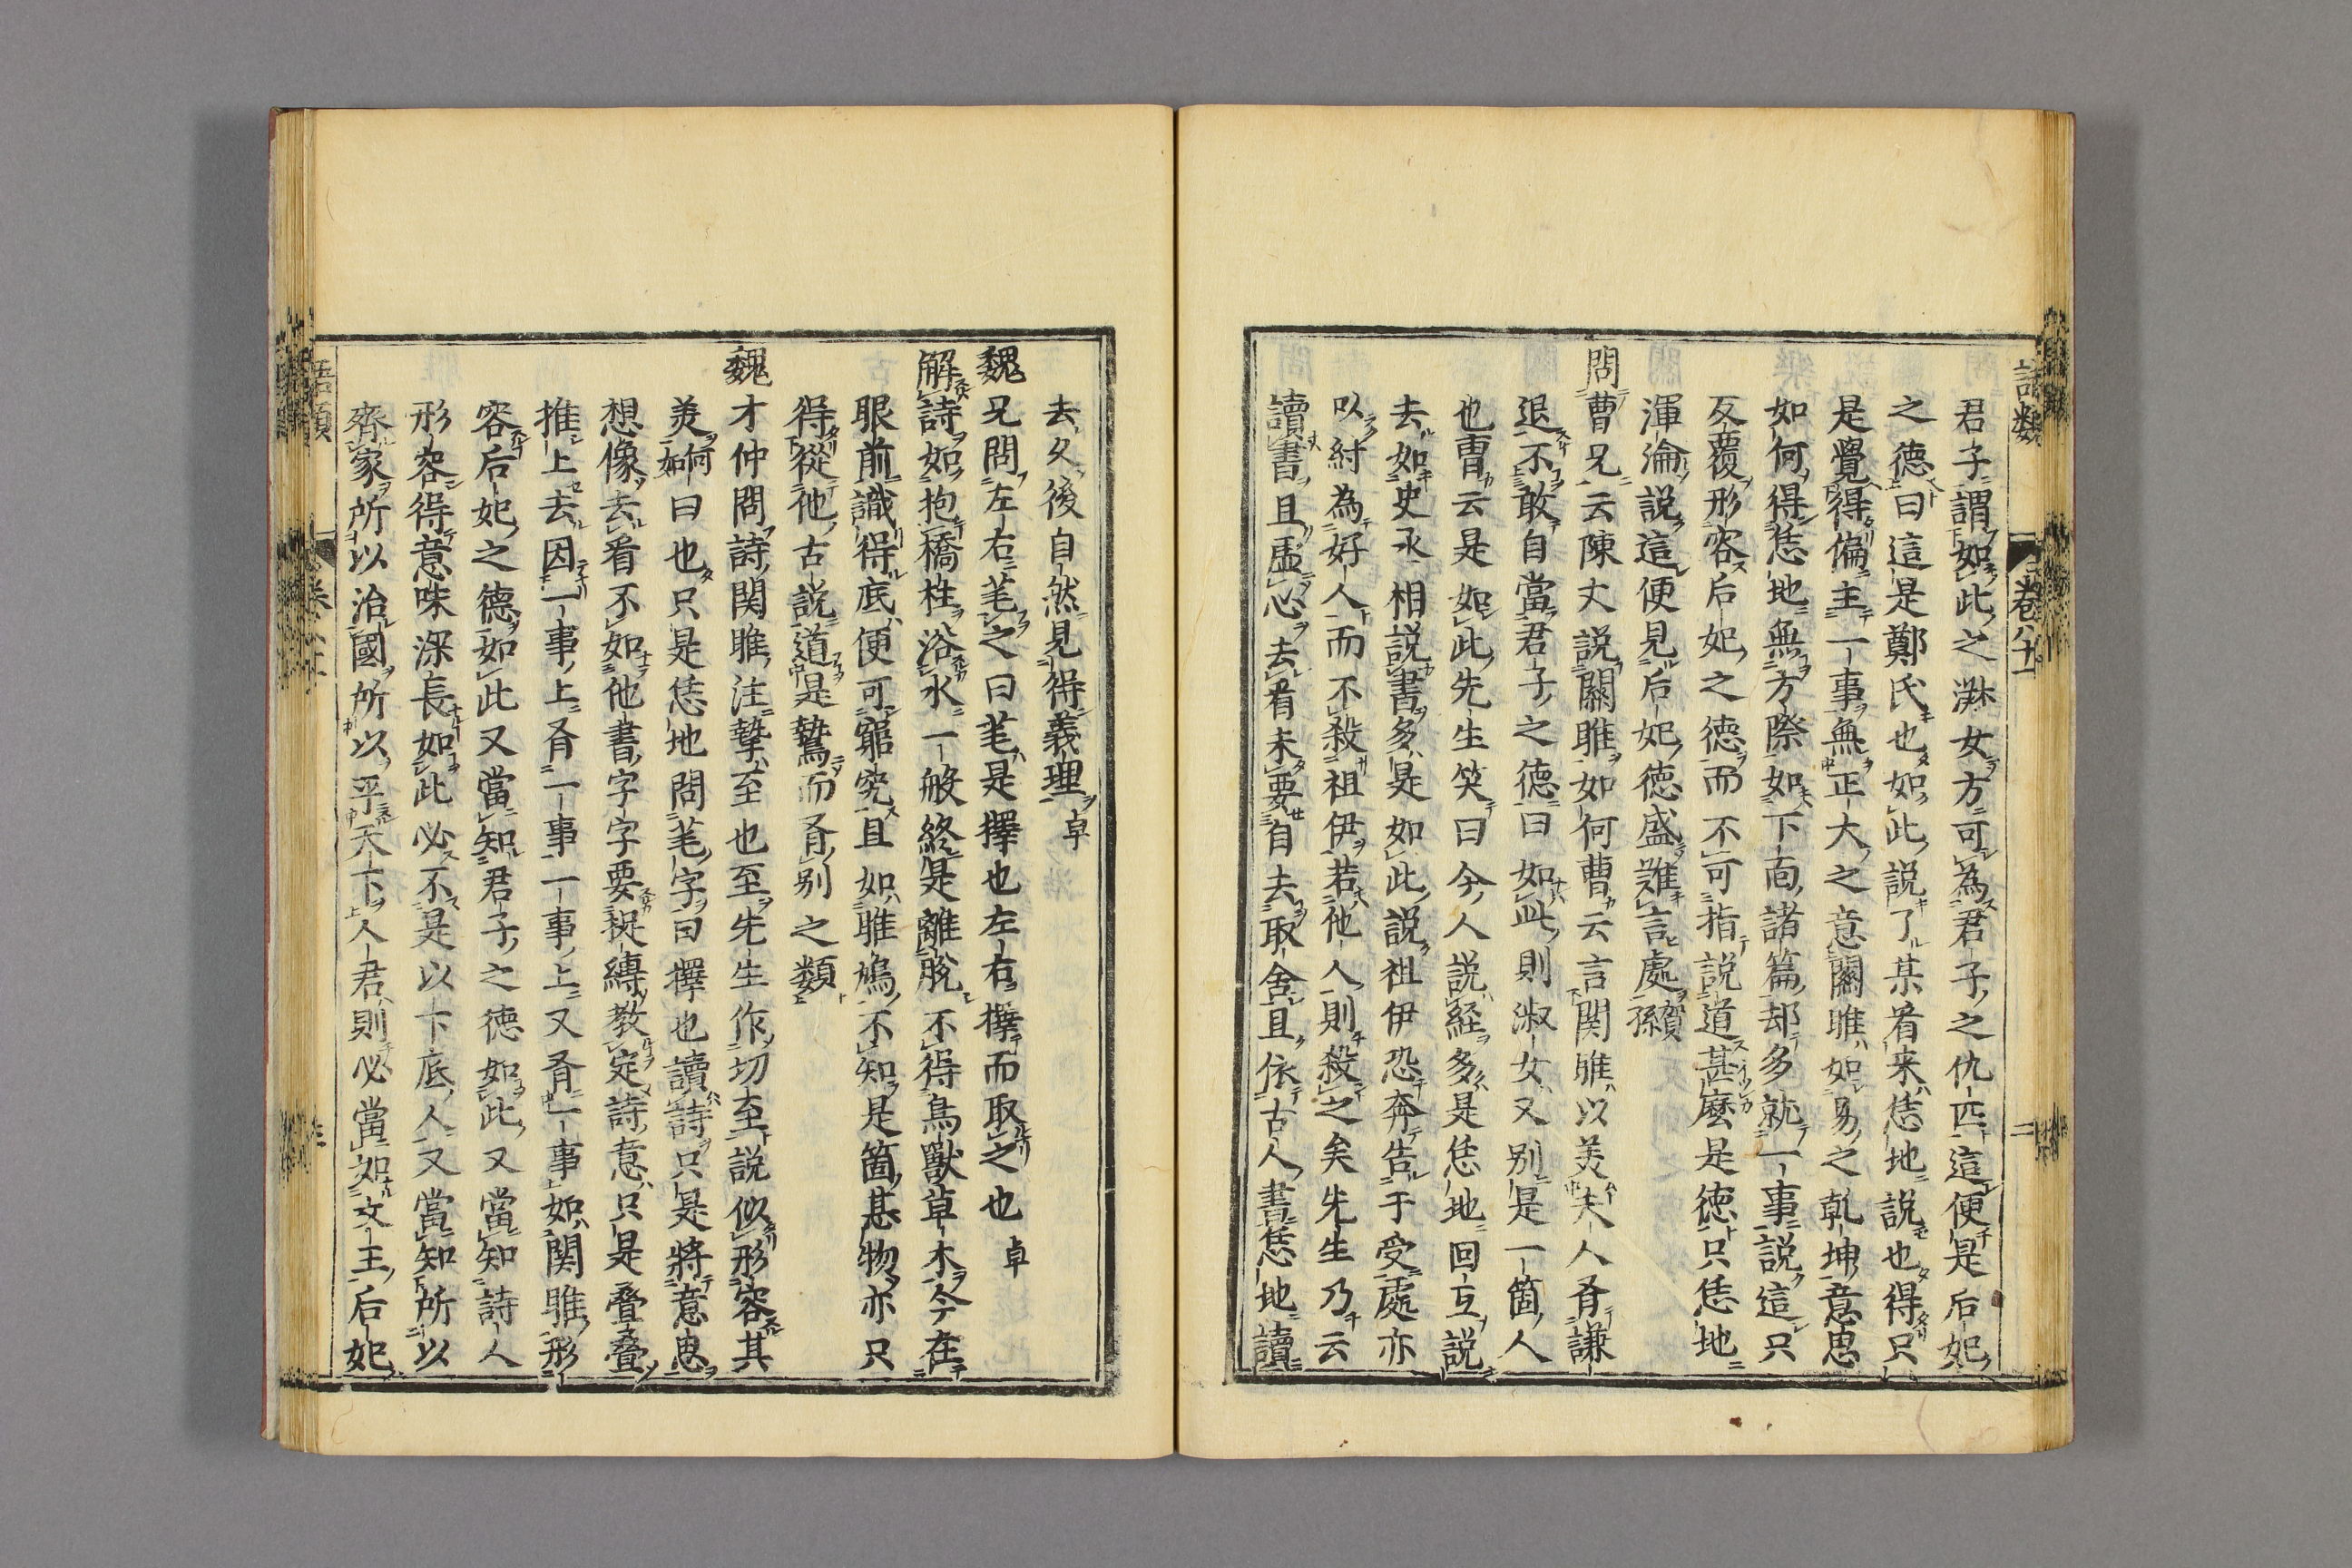 語類
卷八十一
二
君子謂如此之淑女方可為君子之仇匹這便是后妃
之德曰這是鄭氏也如此說了某看来恁地說也得只
是覺得偏主一事無正大之意關雎如易之乾坤意思
如何得恁地無方際如下面諸篇却多就一事說這只
反覆形容后妃之德而不可指說道甚麽是德只恁地
渾淪說這便見后妃德盛難言處賀孫
問曹兄云陳丈説關雎如何曹云言関雎以美夫人有謙
退不敢自當君子之德曰如此則淑女又别是一箇人
也曹云是如此先生笑曰今人説経多是恁地回互說
去如史丞相說書多是如此說祖伊恐奔告于受處亦
以紂為好人而不殺祖伊若他人則殺之矣先生乃云
讀書且虛心去看未要自去取舍且依古人書恁地讀
去久後自然見得義理卓
魏兄問左右芼之曰芼是擇也左右擇而取之也卓
解詩如抱橋柱浴水一般終是離脫不得鳥獸草木今在
眼前識得底便可窮究且如雎鳩不知是箇甚物亦只
得從他古説道是鷙而有别之類
魏才仲問詩関雎注摯至也至先生作切至説似形容其
美何如曰也只是恁地問芼字曰擇也讀詩只是將意思
想像去看不如他書字字要捉縛教定詩意只是疊疊
推上去因一事上有一事一事上又有一事如関雎形
容后妃之德如此又當知君子之德如此又當知詩人
形容得意味深長如此必不是以下底人又當知所以
齊家所以治國所以平天下人君則必當如文王后妃
語類
三